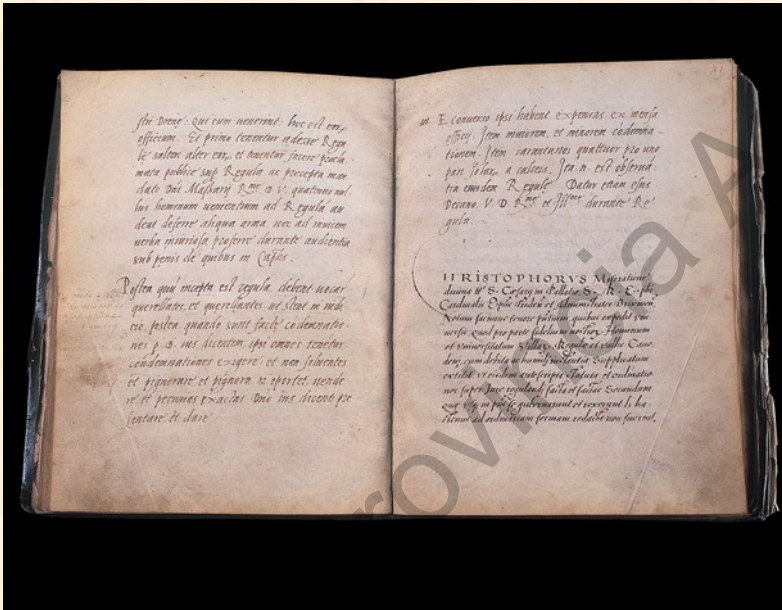 stri Drenę: qui cum uenerint: hoc est eorum
officium. Et primo tenentur adesse Regu
lę saltem alter eorum, et tenentur facere procla
mata publice sup Regula ac precepta man
dato Dni Massarij Rme D. V. quatenus nul
lus hominum uenientium ad Regulā au
deat deferre aliqua arma nec ad inuicem
uerba iniuriosa proferre durante audientia
sub penis de quibus in
Postea quū incepta est regula, debent uocar
querellātes, et ut stent in iudi
cio, postea quando sunt factę cōdemnatio-
nes p D. ius dicentem, ipsi omnes tenetur
condemnationes exigere, et non soluentes
et pignorare et pignora si oportet, uende
re et pecunias exactas Dno ius dicenti pre
sentare, et dare
E conuerso ipsi habent expensas ex mensa
offitij. Item maiorem, et minorem cōdemna-
tionem. Item carantanos quattuor pro uno
pari a calceis. Ita. n. est obserua-
tū eiusdem Regulę Datur etiam esus
Decano. V. D. Rme et Illme durante Re
gula
HRISTOPHORVS Miseratione
diuina tt S. Cæsarij in Pallatio S. R. E. pbr
Cardinalis Eps Tridenti et Administrator Brixinen
Notum facimus tenore pūtium, quibus expedit vni
uersis, quod pro parte fidelium nostror Hominum
et vniuersitatum Villar Regulę et vallis Caue
den, cum debita ac humili instantia supplicatum
extitit, vt eisdem statuta et ordinatio
nes super Jure regulandi facta et factas Secundum
quę gubernarunt et rexerunt, h ha-
ctenus ad ordinariam formam redacta non fuerunt,
rovincia A